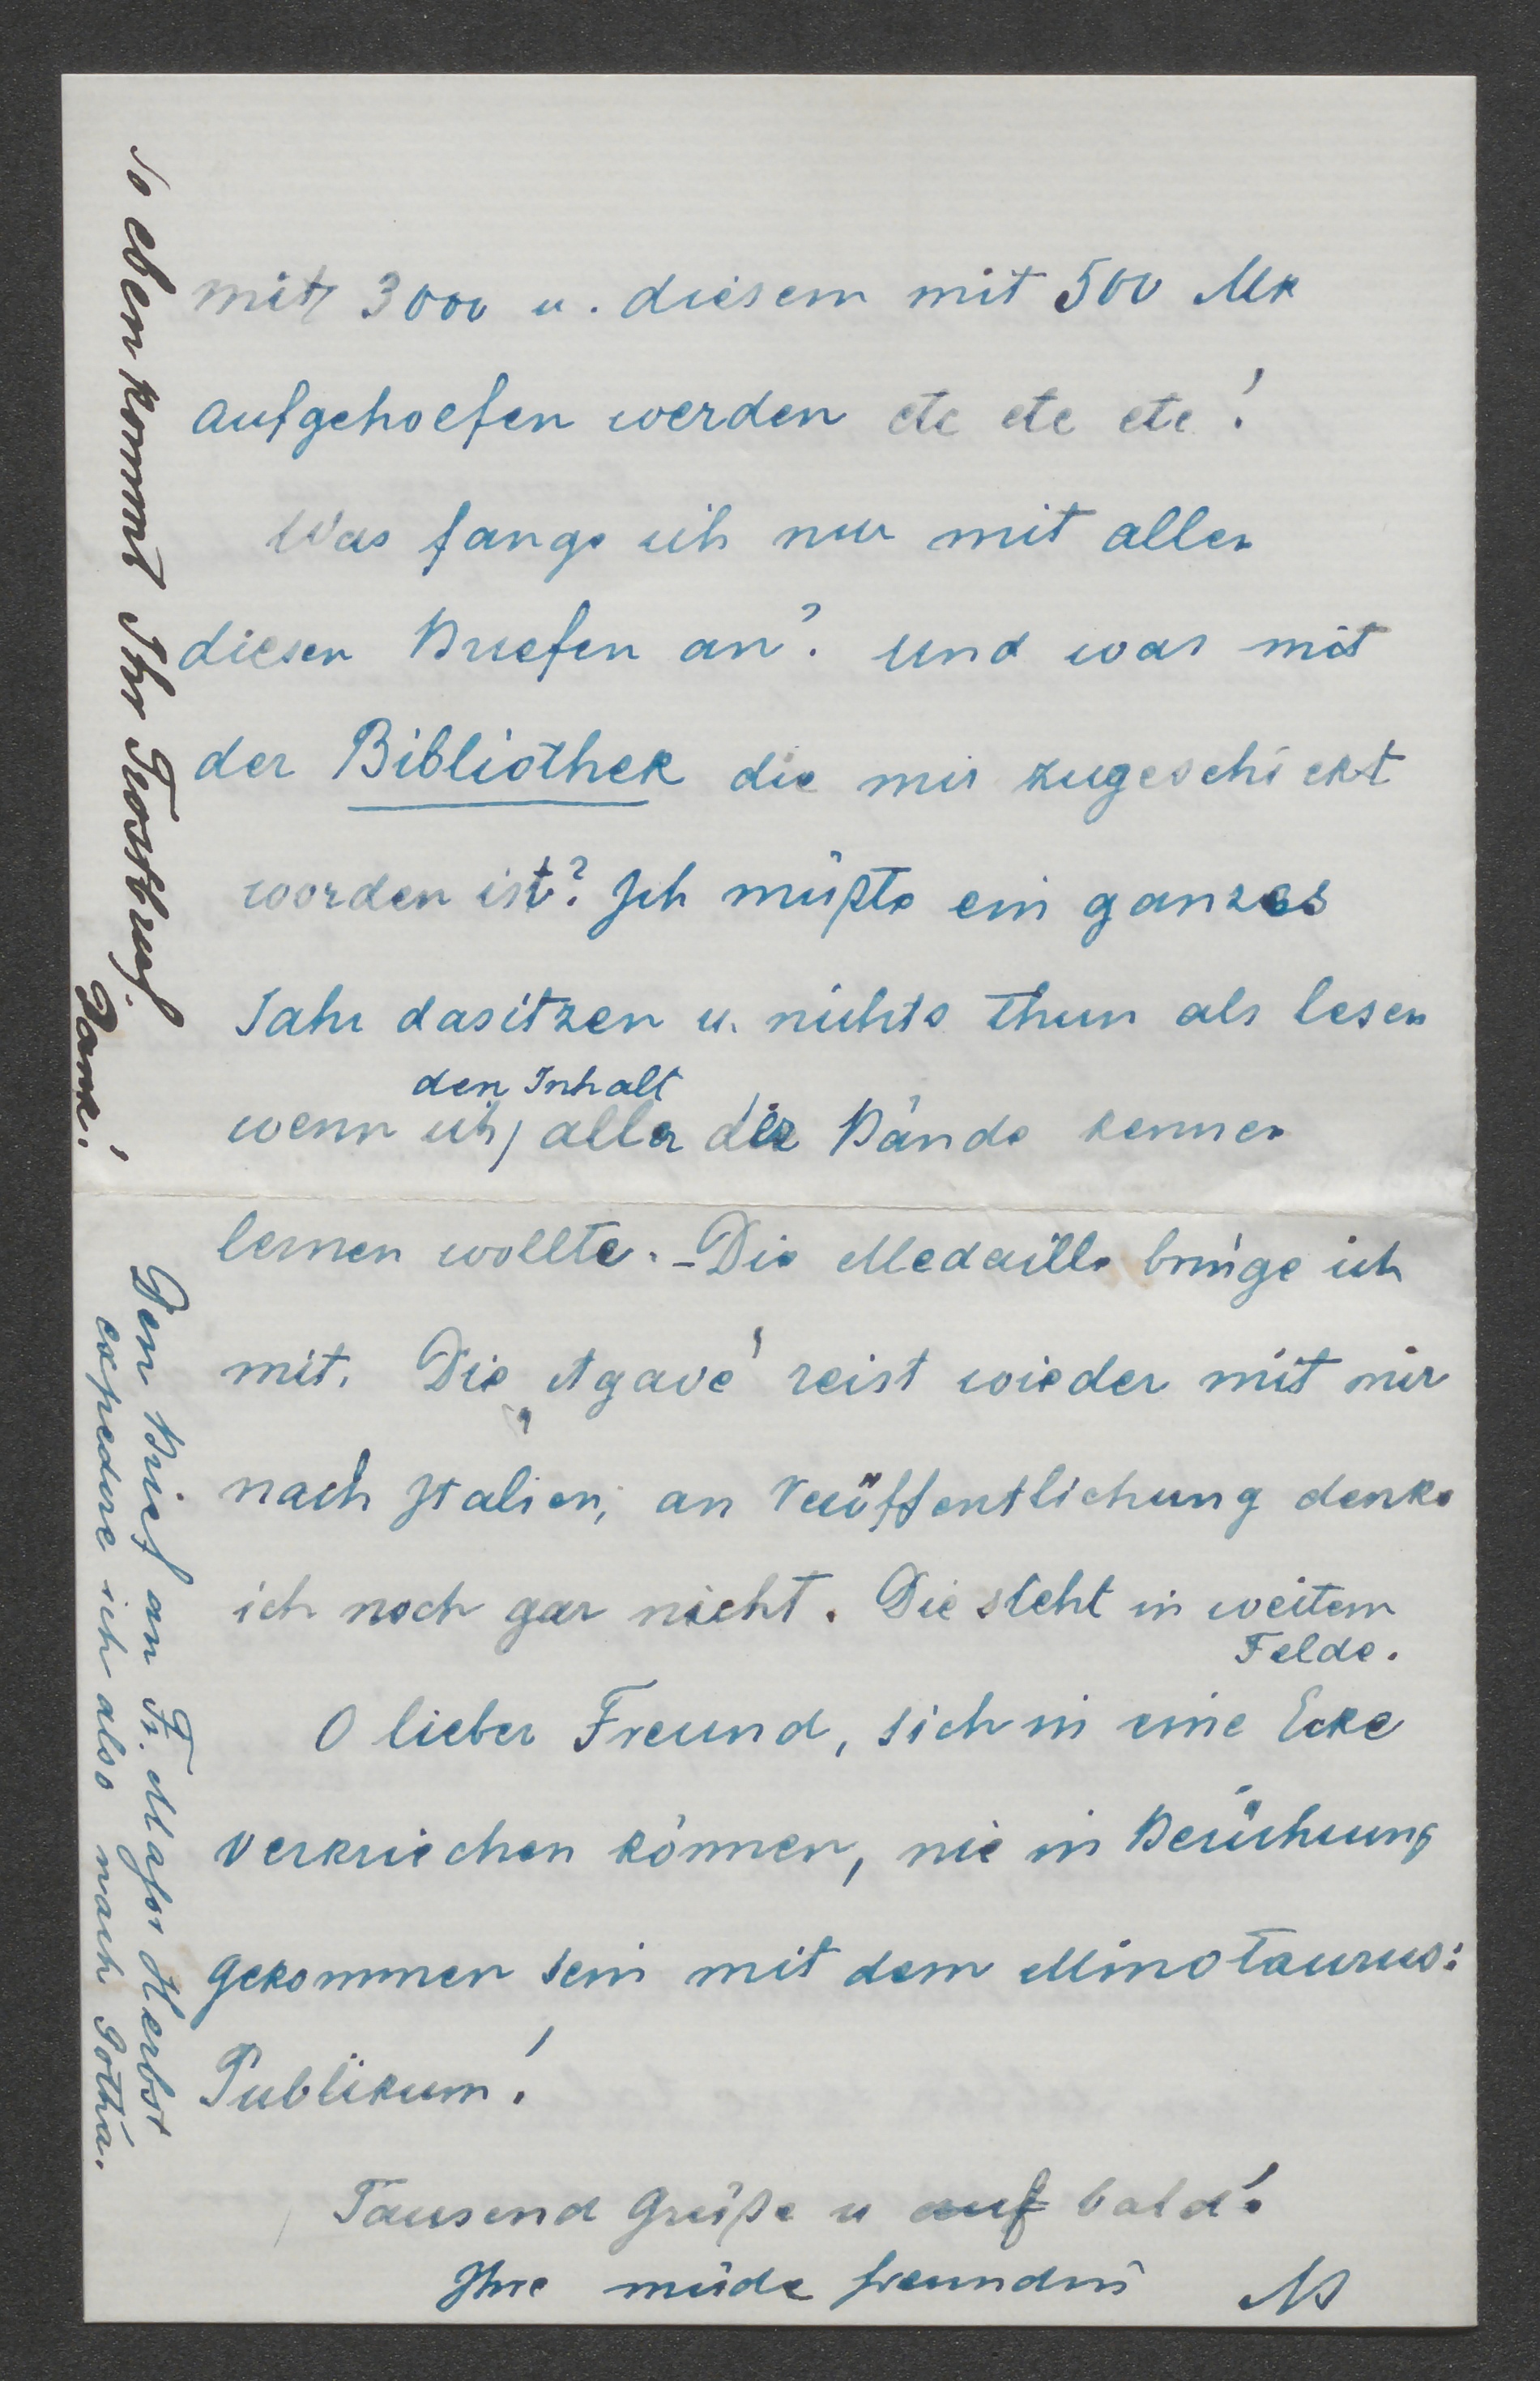 mit 3000 u. diesem mit 500 Mk
aufgeholfen werden etc etc etc!
Was fange ich nur mit allen
diesen Briefen an? und was mit
der Bibliothek die mir zugeschickt
worden ist? Ich müßte ein ganzes
Jahr dasitzen u. nichts thun als lesen
den Inhalt
wenn ich aller der Bände kennen
lernen wollte. – Die Medaille bringe ich
mit. Die „Agave" reist wieder mit mir
nach Italien, an Veröffentlichung denke
ich noch gar nicht. Die steht in weitem
Felde.
O lieber Freund, sich in eine Ecke
verkriechen können, nie in Berührung
gekommen sein mit dem Minotaurus:
Publikum!
Tausend Grüße u auf bald!
Ihre müde Freundin
So eben kommt Ihr Trostbrief.
Dank!
Den Brief an Fr. Major Herbst
expedire ich also nach Gotha.